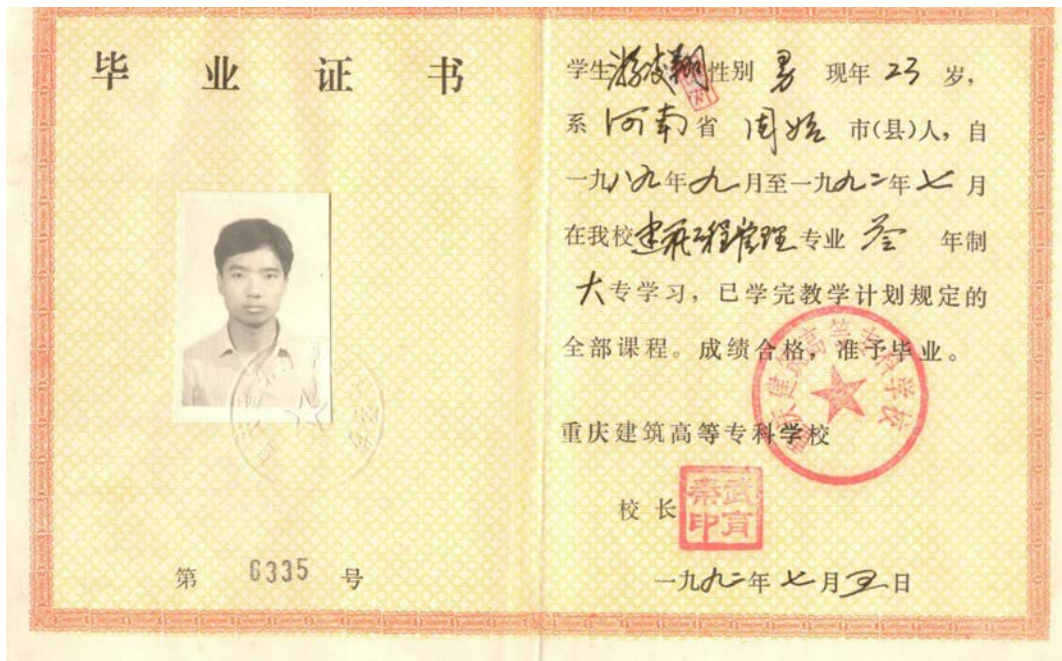 毕业证书
第 6335 号
学生游凌翔性别 男 现年 23 岁,
系 河南省 固始 市(县)人，自
一九八九年九月至一九九二年七月
在我校建筑工程管理专业 叁 年制
大专学习，已学完教学计划规定的
全部课程。成绩合格，准予毕业。
重庆建筑高等专科学校
重庆建筑高等专科学校
校 长
武育
秦印
一九九二年七月五日